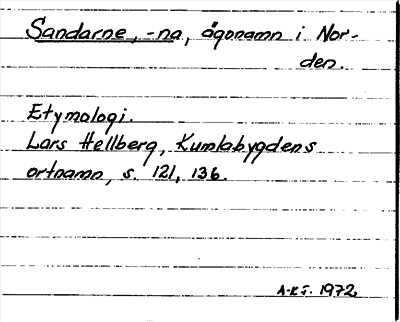 Sandarne, -na, ägonamn i Nor-
den.
Etymologi.
Lars Hellberg, Kumlabygdens
ortnamn, s. 121, 136.
A-K J. 1972